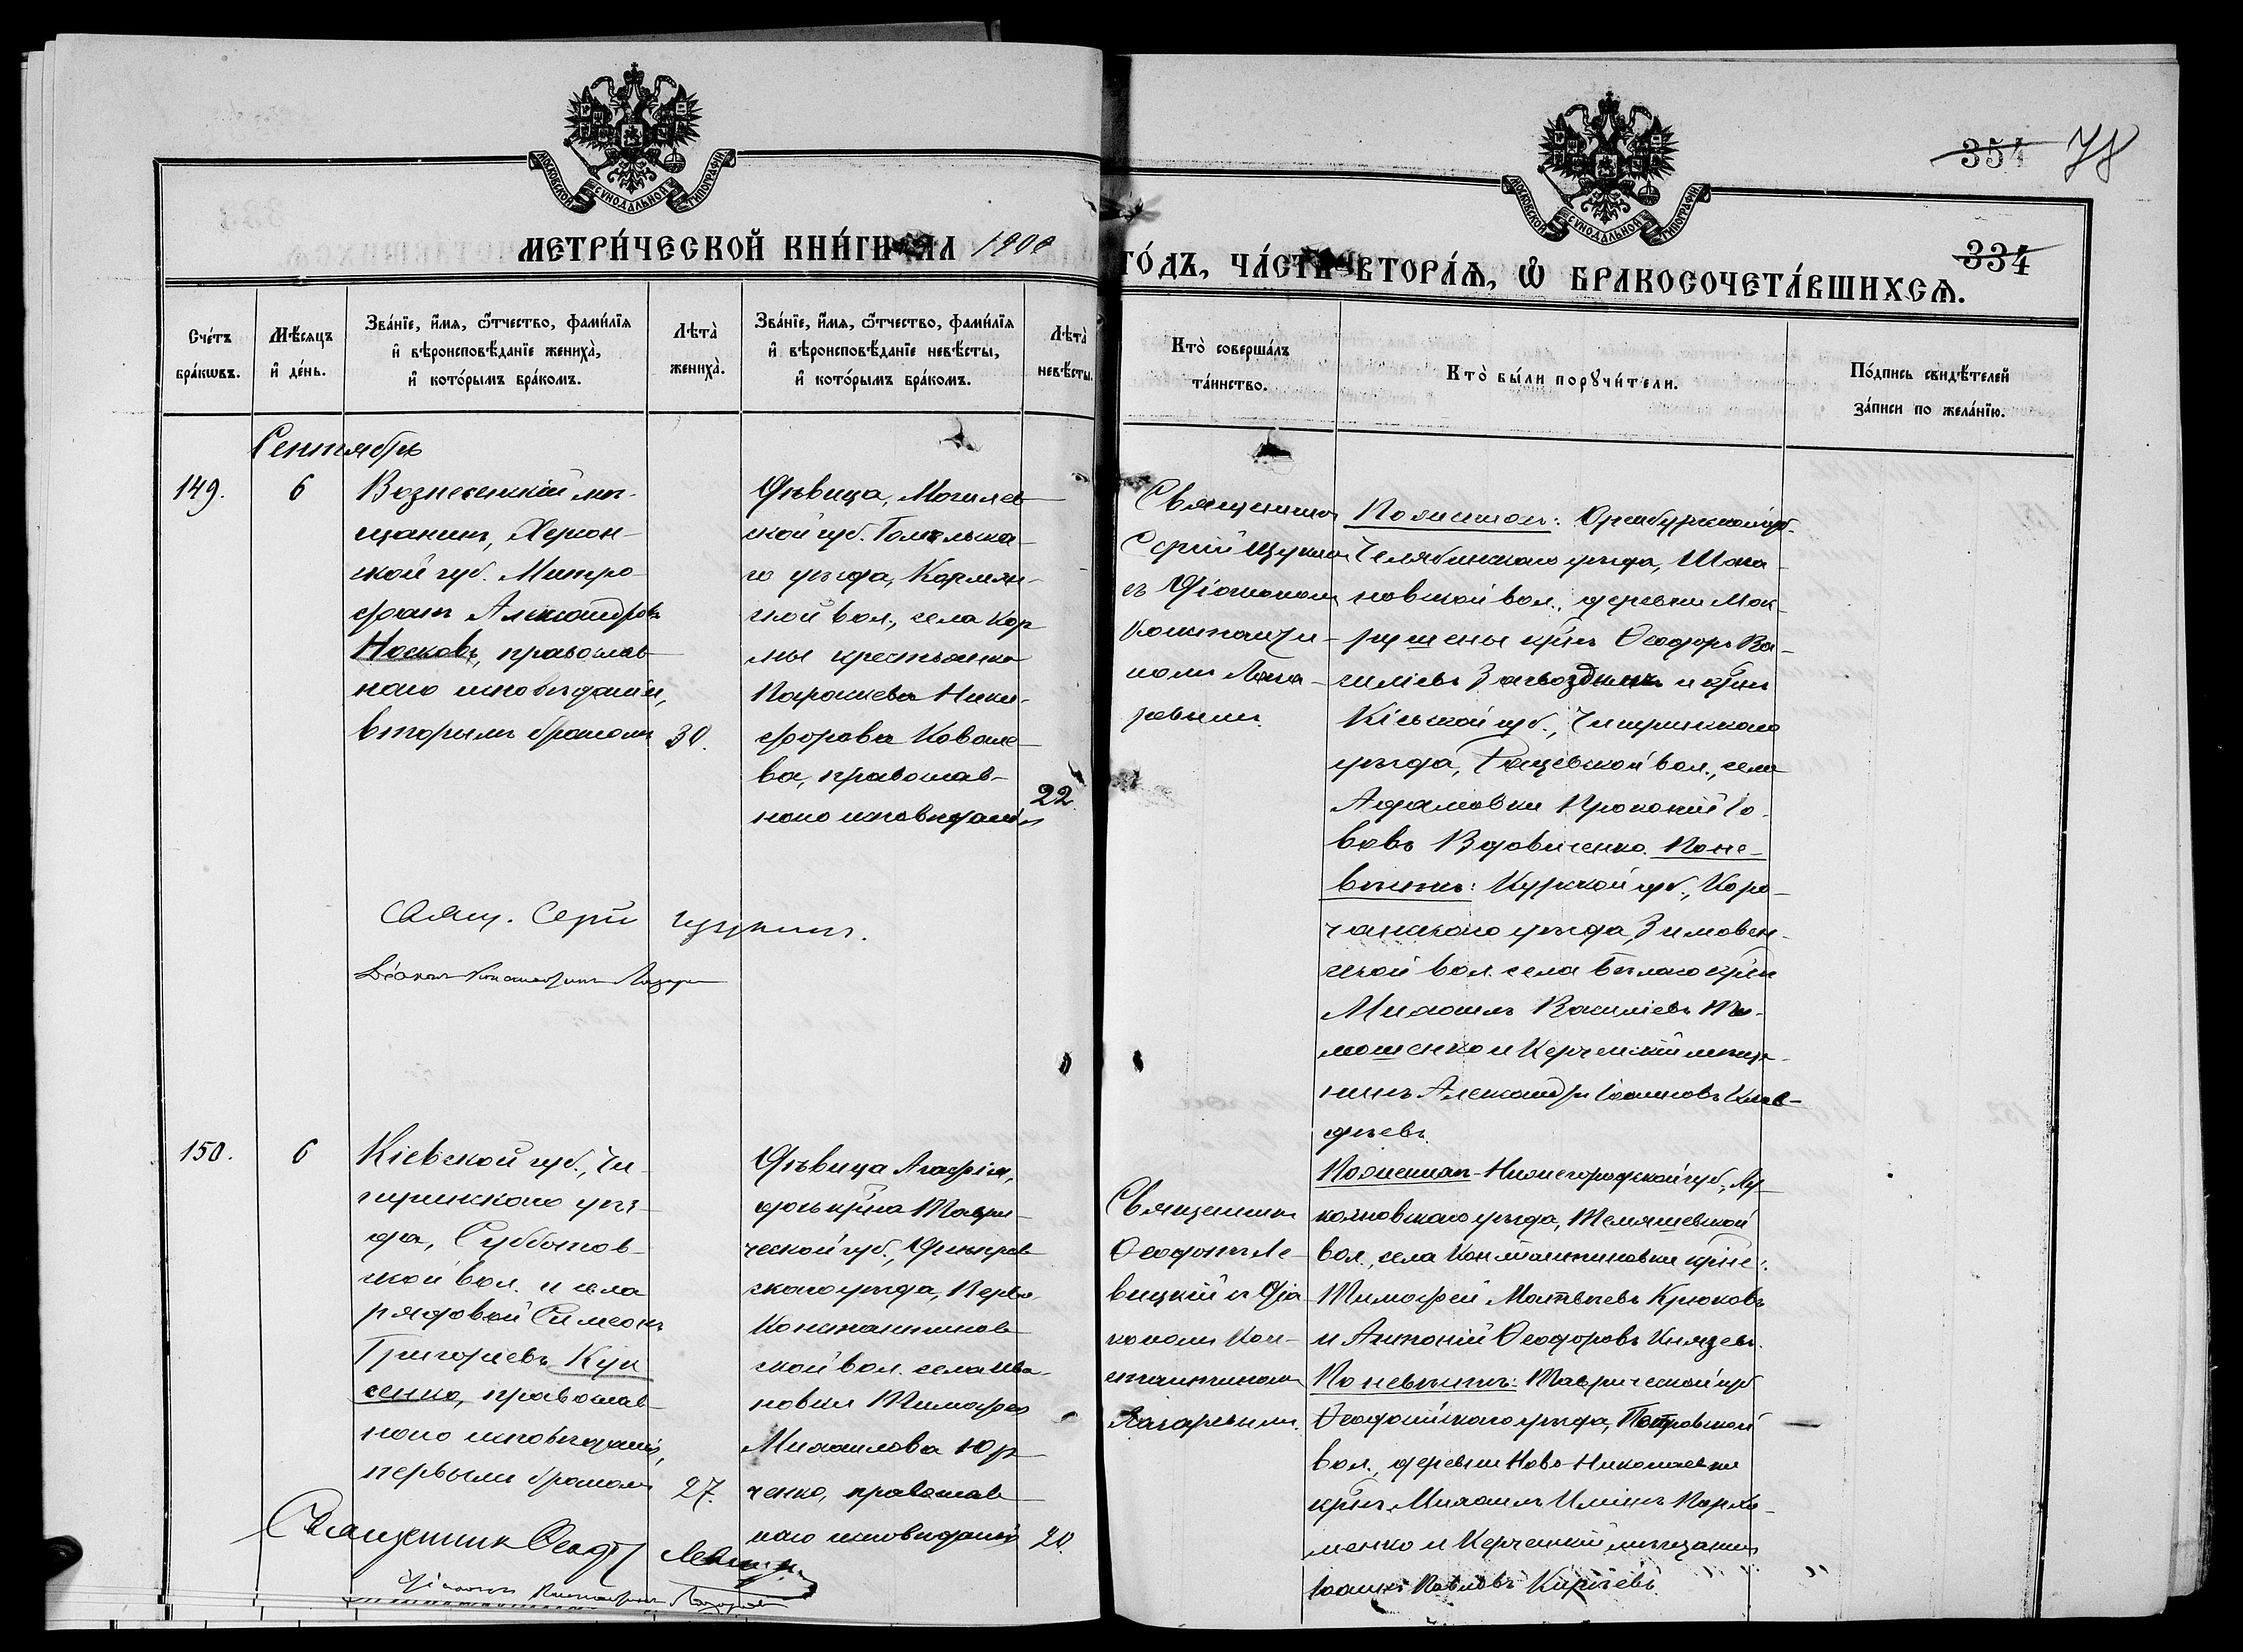 354 78
МОСКОВСКОЙ СѴНОДАЛЬНОЙ ТИПОГРАФІИ
МОСКОВСКОЙ СѴНОДАЛЬНОЙ ТИПОГРАФІИ
МЕТРИ́ЧЕСКОЙ КНИ́ГИ НА 190
ГО́ДЪ, ЧА́СТЬ ВТОРА́Ѧ, Ѡ҆ БРАКОСОЧЕТА́ВШИХСѦ.
334
Сче́тъ
бра́кѡвъ.
Мѣ́сяцъ
и҆ де́нь.
Зва́нїе, и҆́мѧ, ѻ҆́тчество, фами́лїѧ
и҆ вѣроисповѣ́данїе жениха̀,
и҆ кото́рымъ бра́комъ.
Лѣта̀
жениха̀.
Зва́нїе, и҆́мѧ, ѻ҆́тчество, фами́лїѧ
и҆ вѣроисповѣ́данїе невѣ́сты,
и҆ кото́рымъ бра́комъ.
Лѣта̀
невѣ́сты.
Кто̀ соверша́лъ
та́инство.
Кто̀ бы́ли порꙋчи́тели.
По́дпись свидѣ́телей
за́писи по жела́нїю.
Сентябрь
149.
6
Вознесенскій мѣ-
щанинъ, Херсон-
ской губ. Митро-
фанъ Александровъ
Носковъ, православ-
наго исповѣданія,
вторымъ бракомъ
30.
Дѣвица, Могилев-
ской губ. Гомельска-
го уѣзда, Кормян-
ской вол., села Кор-
мы крестьянка
Параскева Ники-
форова Ковале-
ва, православ-
наго исповѣданія
22.
Священникъ
Сергій Щукинъ
съ Діакономъ
Константи-
номъ Лаза-
ревымъ.
По женихѣ: Оренбургской губ.
Челябинскаго уѣзда,
новской вол., деревни Мок-
роусовы крест. Ѳеодоръ Ва-
силіевъ Загвоздинъ и крест.
Кіевской губ., Чигиринскаго
уѣзда, вол., села
Адамовки Прокопій Іо-
вовъ Вдовиченко. По не-
вѣстѣ: Курской губ., Коро-
чанскаго уѣзда, Зимовен-
ской вол. села Бѣлаго крест.
Михаилъ Василіевъ Ти-
мошенко и Керченскій мѣща-
нинъ Александръ Іоанновъ
Свящ. Сергій Щукинъ.
Діаконъ Константинъ Лазарев
150.
6
Кіевской губ., Чи-
гиринскаго уѣз-
да, Субботов-
ской вол. и села
рядовой Симеонъ
Григоріевъ Куц-
сенко, православ-
наго исповѣданія,
первымъ бракомъ
27.
Дѣвица Агафія,
дочь крест. Таври-
ческой губ., Днѣпров-
скаго уѣзда, Перво-
Константинов-
ской вол. села Ива-
новки Тимофея
Михаилова Юр-
ченко, православ-
наго исповѣданія
20.
Священникъ
Ѳеодотъ Ле-
вицкій съ Діа-
кономъ Кон-
стантиномъ
Лазаревымъ.
По женихѣ: Нижегородской губ., Лу-
кояновскаго уѣзда, Темяшевской
вол., села Константиновки крест.:
Тимофей Матвѣевъ Крюковъ
и Антоній Ѳеодоровъ Князевъ.
По невѣстѣ: Таврической губ.
Ѳеодосійскаго уѣзда, Петровской
вол., деревни Ново-Николаевки
крест. Михаилъ Иліинъ Пархо-
менко и Керченскій мѣщанинъ
Іоаннъ Павловъ Киріевъ.
Священникъ Ѳеодотъ Левицкій
Діаконъ Константинъ Лазарев